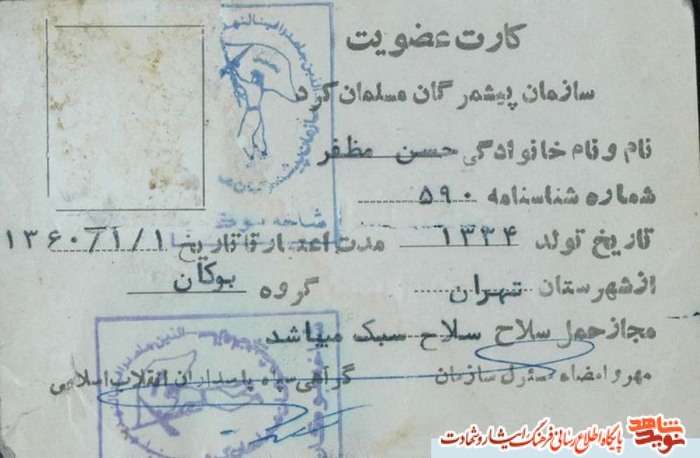 کارت عضویت
سازمان پیشمرگان مسلمان کرد
نام و نام خانوادگی حسن مظفر
شماره شناسنامه ۵۹۰
تاریخ تولد ۱۳۳۴ مدت اعتبار تا تاریخ ۱۳۶۰/۱/۱
از شهرستان تهران گروه بوکان
مجاز حمل سلاح سلاح سبک میباشد
مهر و امضاء مسئول سازمان گواهی سپاه پاسداران انقلاب اسلامی
نوید شاهد
پایگاه اطلاع رسانی فرهنگ ایثار و شهادت